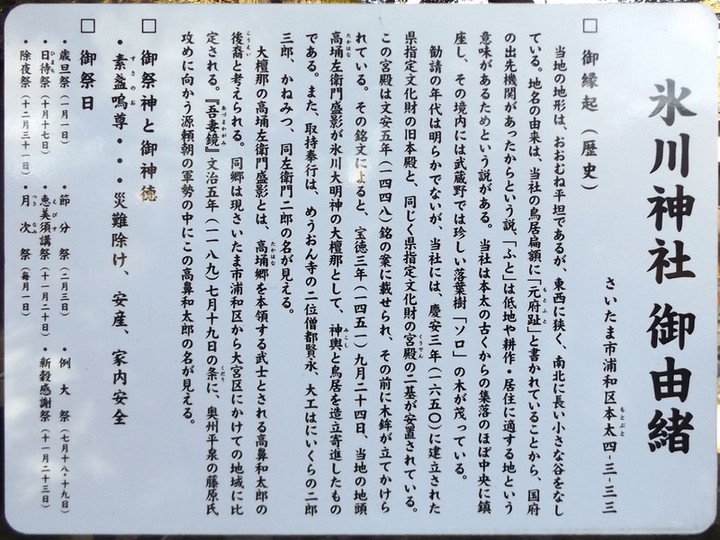 氷川神社 御由緒
さいたま市浦和区本太四-三-三三
□ 御縁起（歴史）
当地の地形は、おおむね平坦であるが、東西に狭く、南北に長い小さな谷をなし
ている。地名の由来は、当社の鳥居扁額に「元府趾」と書かれていることから、国府
の出先機関があったからという説、「ふと」は低地や耕作・居住に適する地という
意味があるためという説がある。当社は本太の古くからの集落のほぼ中央に鎮
座し、その境内には武蔵野では珍しい落葉樹「ソロ」の木が茂っている。
勧請の年代は明らかでないが、当社には、慶安三年（一六五〇）に建立された
県指定文化財の旧本殿と、同じく県指定文化財の宮殿の二基が安置されている。
この宮殿は文安五年（一四四八）銘の案に載せられ、その前に木鉾が立てかけら
れている。その銘文によると、宝徳三年（一四五一）九月二十四日、当地の地頭
高埇左衛門盛影が氷川大明神の大檀那として、神輿と鳥居を造立寄進したもの
である。また、取持奉行は、めうおん寺の二位僧都賢永、大工はにいくらの二郎
三郎、かねみつ、同左衛門二郎の名が見える。
大檀那の高埇左衛門盛影とは、高埇郷を本領する武士とされる高鼻和太郎の
後裔と考えられる。同郷は現さいたま市浦和区から大宮区にかけての地域に比
定される。『吾妻鏡』文治五年（一一八九）七月十九日の条に、奥州平泉の藤原氏
攻めに向かう源頼朝の軍勢の中にこの高鼻和太郎の名が見える。
□ 御祭神と御神徳
・素盞嗚尊・・・災難除け、安産、家内安全
□ 御祭日
・歳旦祭（一月一日） ・節分祭（二月三日） ・例大祭（七月十八・十九日）
・日待祭（十月十七日） ・恵美須講祭（十一月二十日） ・新穀感謝祭（十一月二十三日）
・除夜祭（十二月三十一日） ・月次祭（毎月一日）